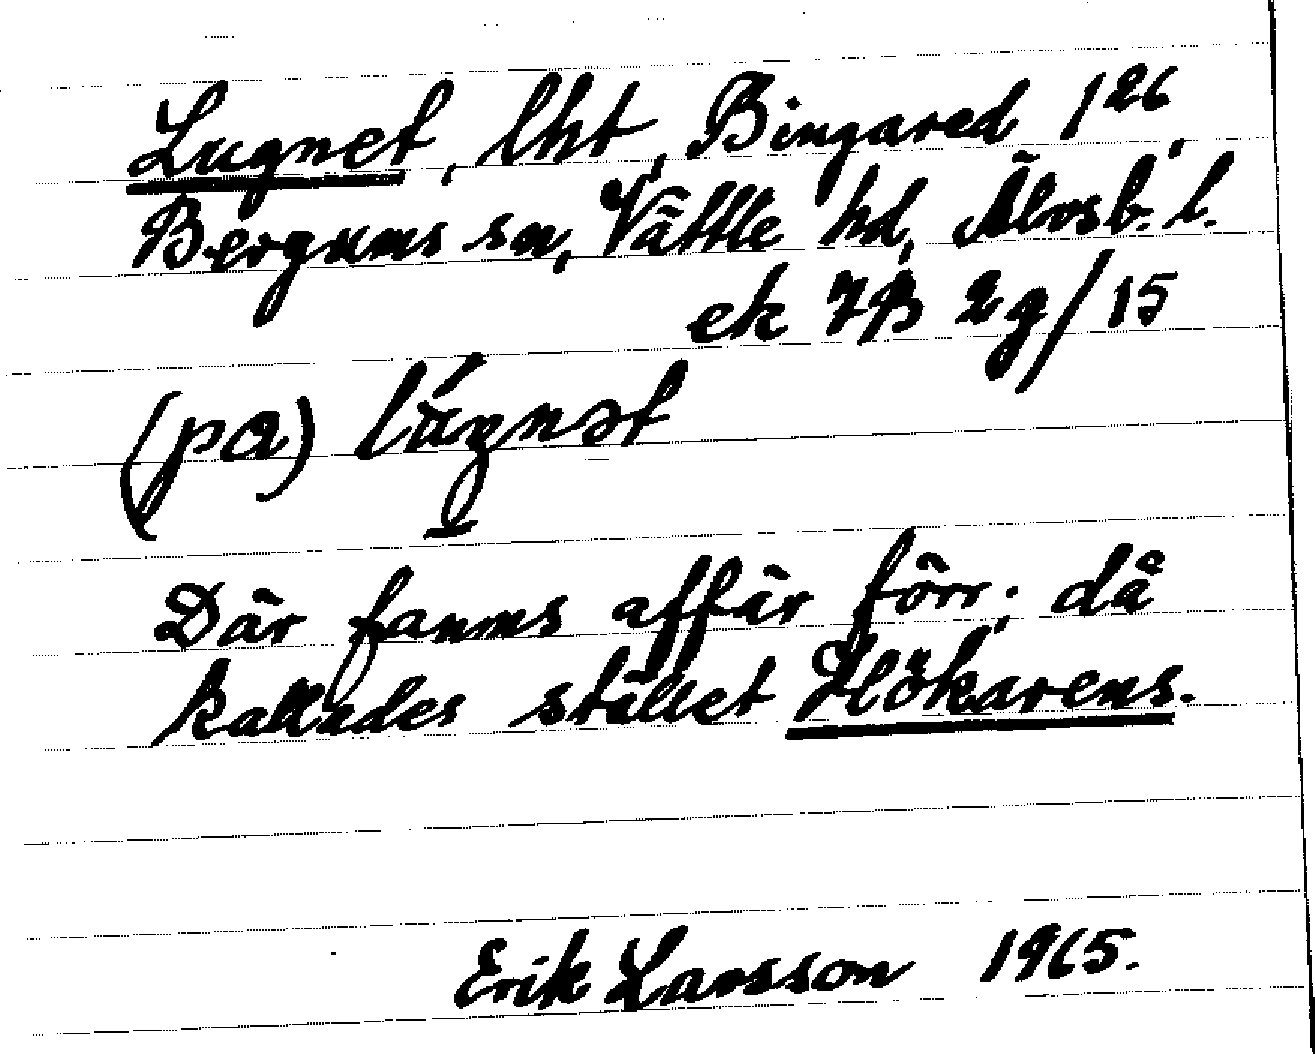 Lugnet, lht, Bingared 1²⁶,
Bergums sn, Vättle hd, Älvsb. l.
ek 7B 2g/15
(pa) lúgnət
Där fanns affär förr; då
kallades stället Hökarens.
Erik Larsson 1965.